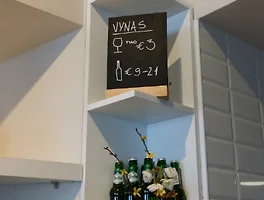 VYNAS
nuo €3
€9-21